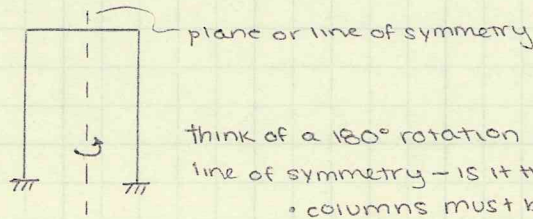 plane or line of symmetry
think of a 180° rotation
line of symmetry – is it
• columns must